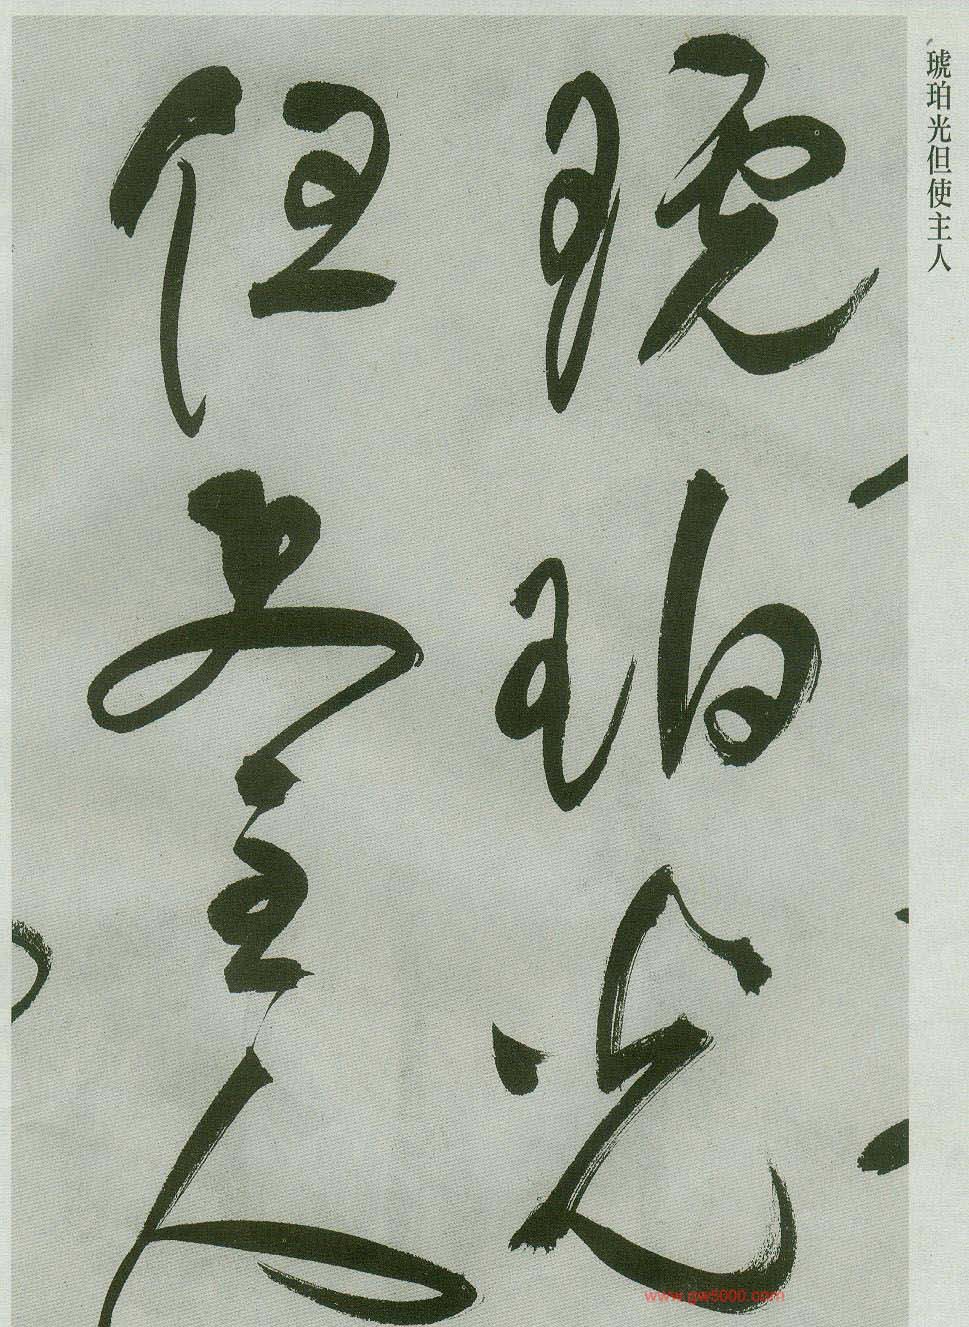 琥珀光但使主人
琥珀光
但使主人
www.gw5000.com